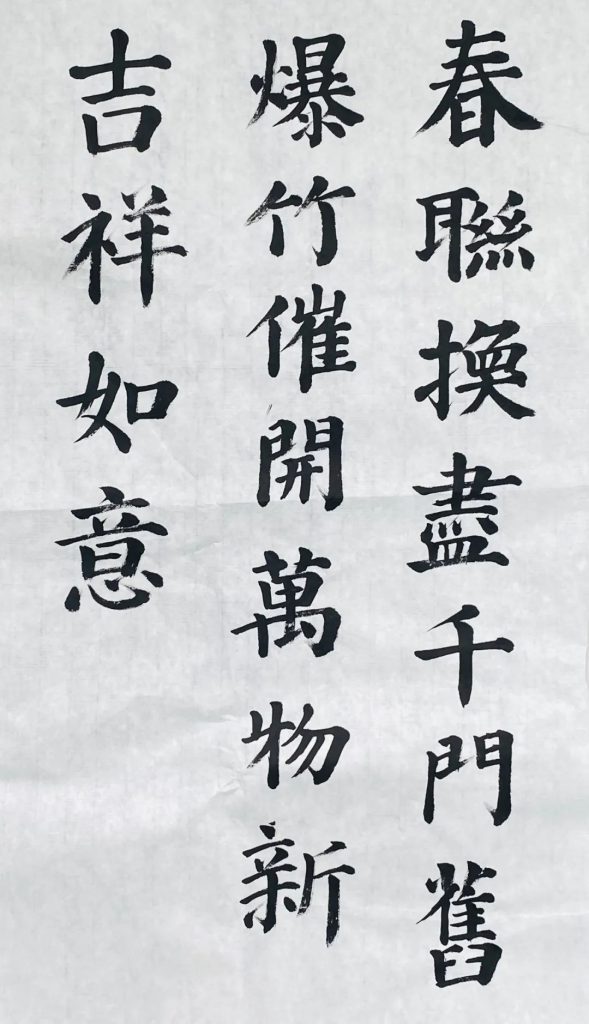 春聯換盡千門舊
爆竹催開萬物新
吉祥如意